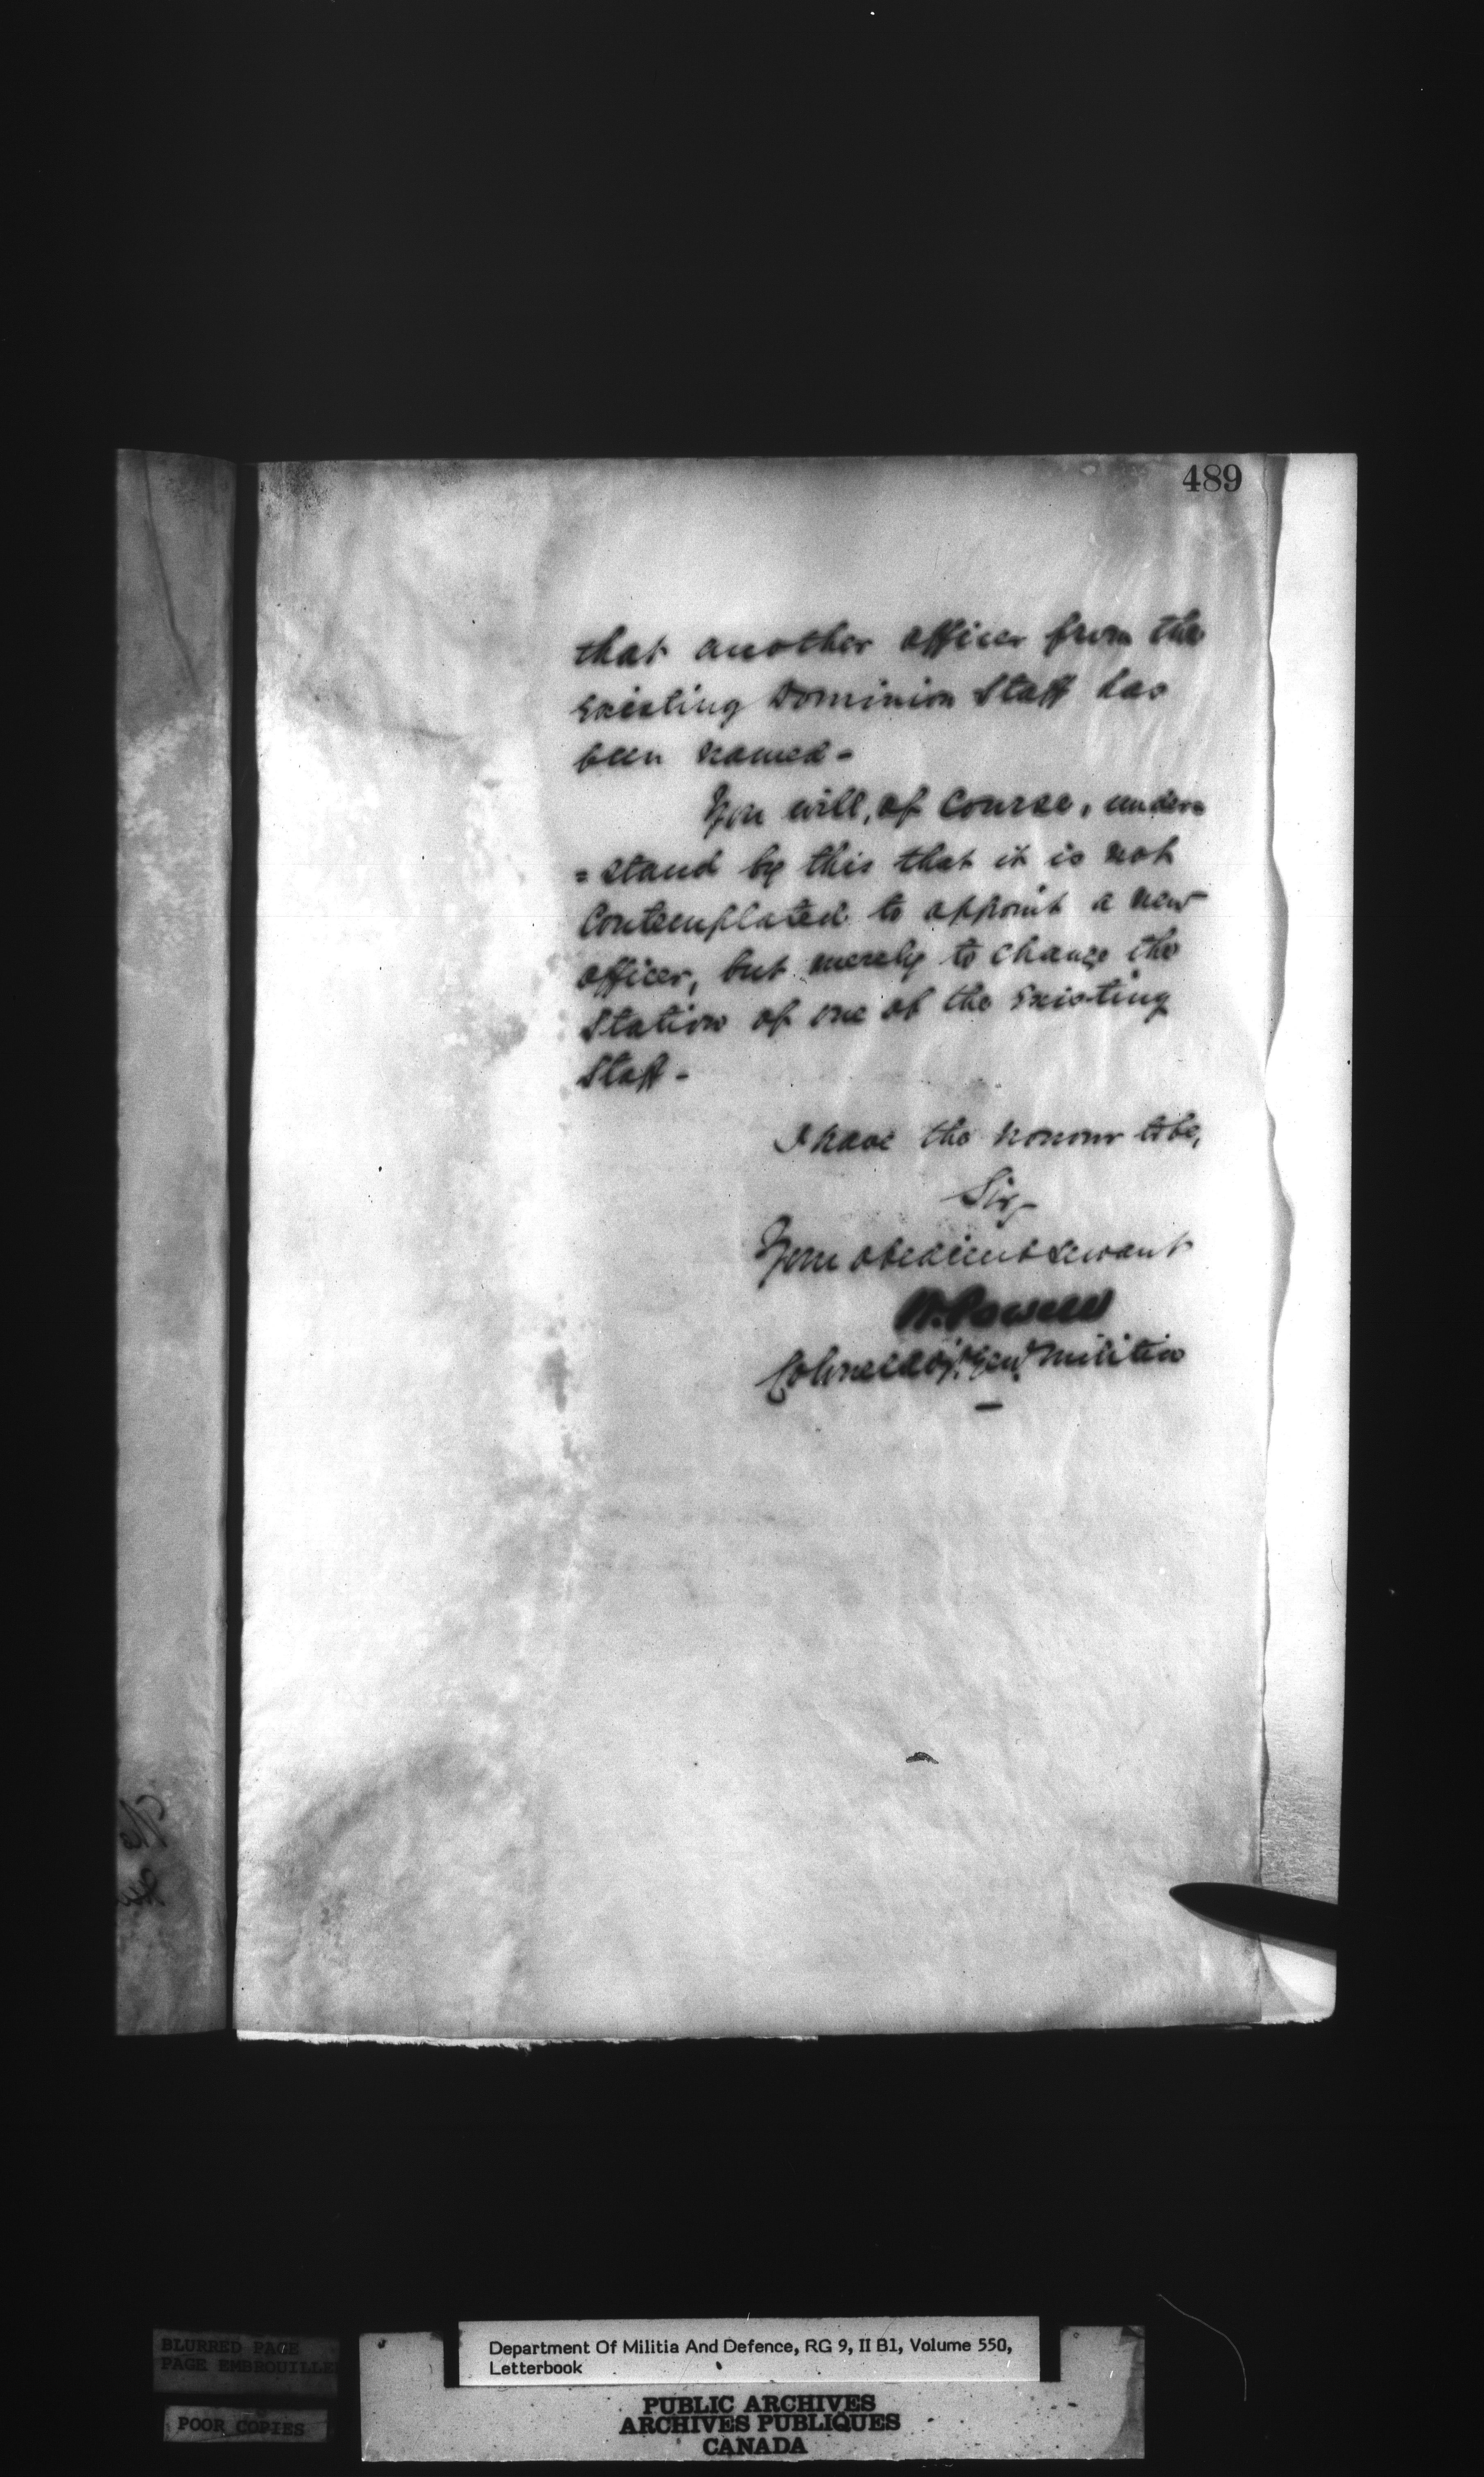 489
that another officer from the
existing Dominion Staff has
been named -
You will, of course, under
= stand by this that it is not
Contemplated to appoint a new
officer, but merely to change the
Station of one of the existing
Staff -
I have the honour to be,
Sir,
Your obedient servant
W. Powell
Colonel Adjt. Genl. Militia
BLURRED PAGE
PAGE EMBROUILLE
POOR COPIES
Department Of Militia And Defence, RG 9, II B1, Volume 550,
Letterbook
PUBLIC ARCHIVES
ARCHIVES PUBLIQUES
CANADA